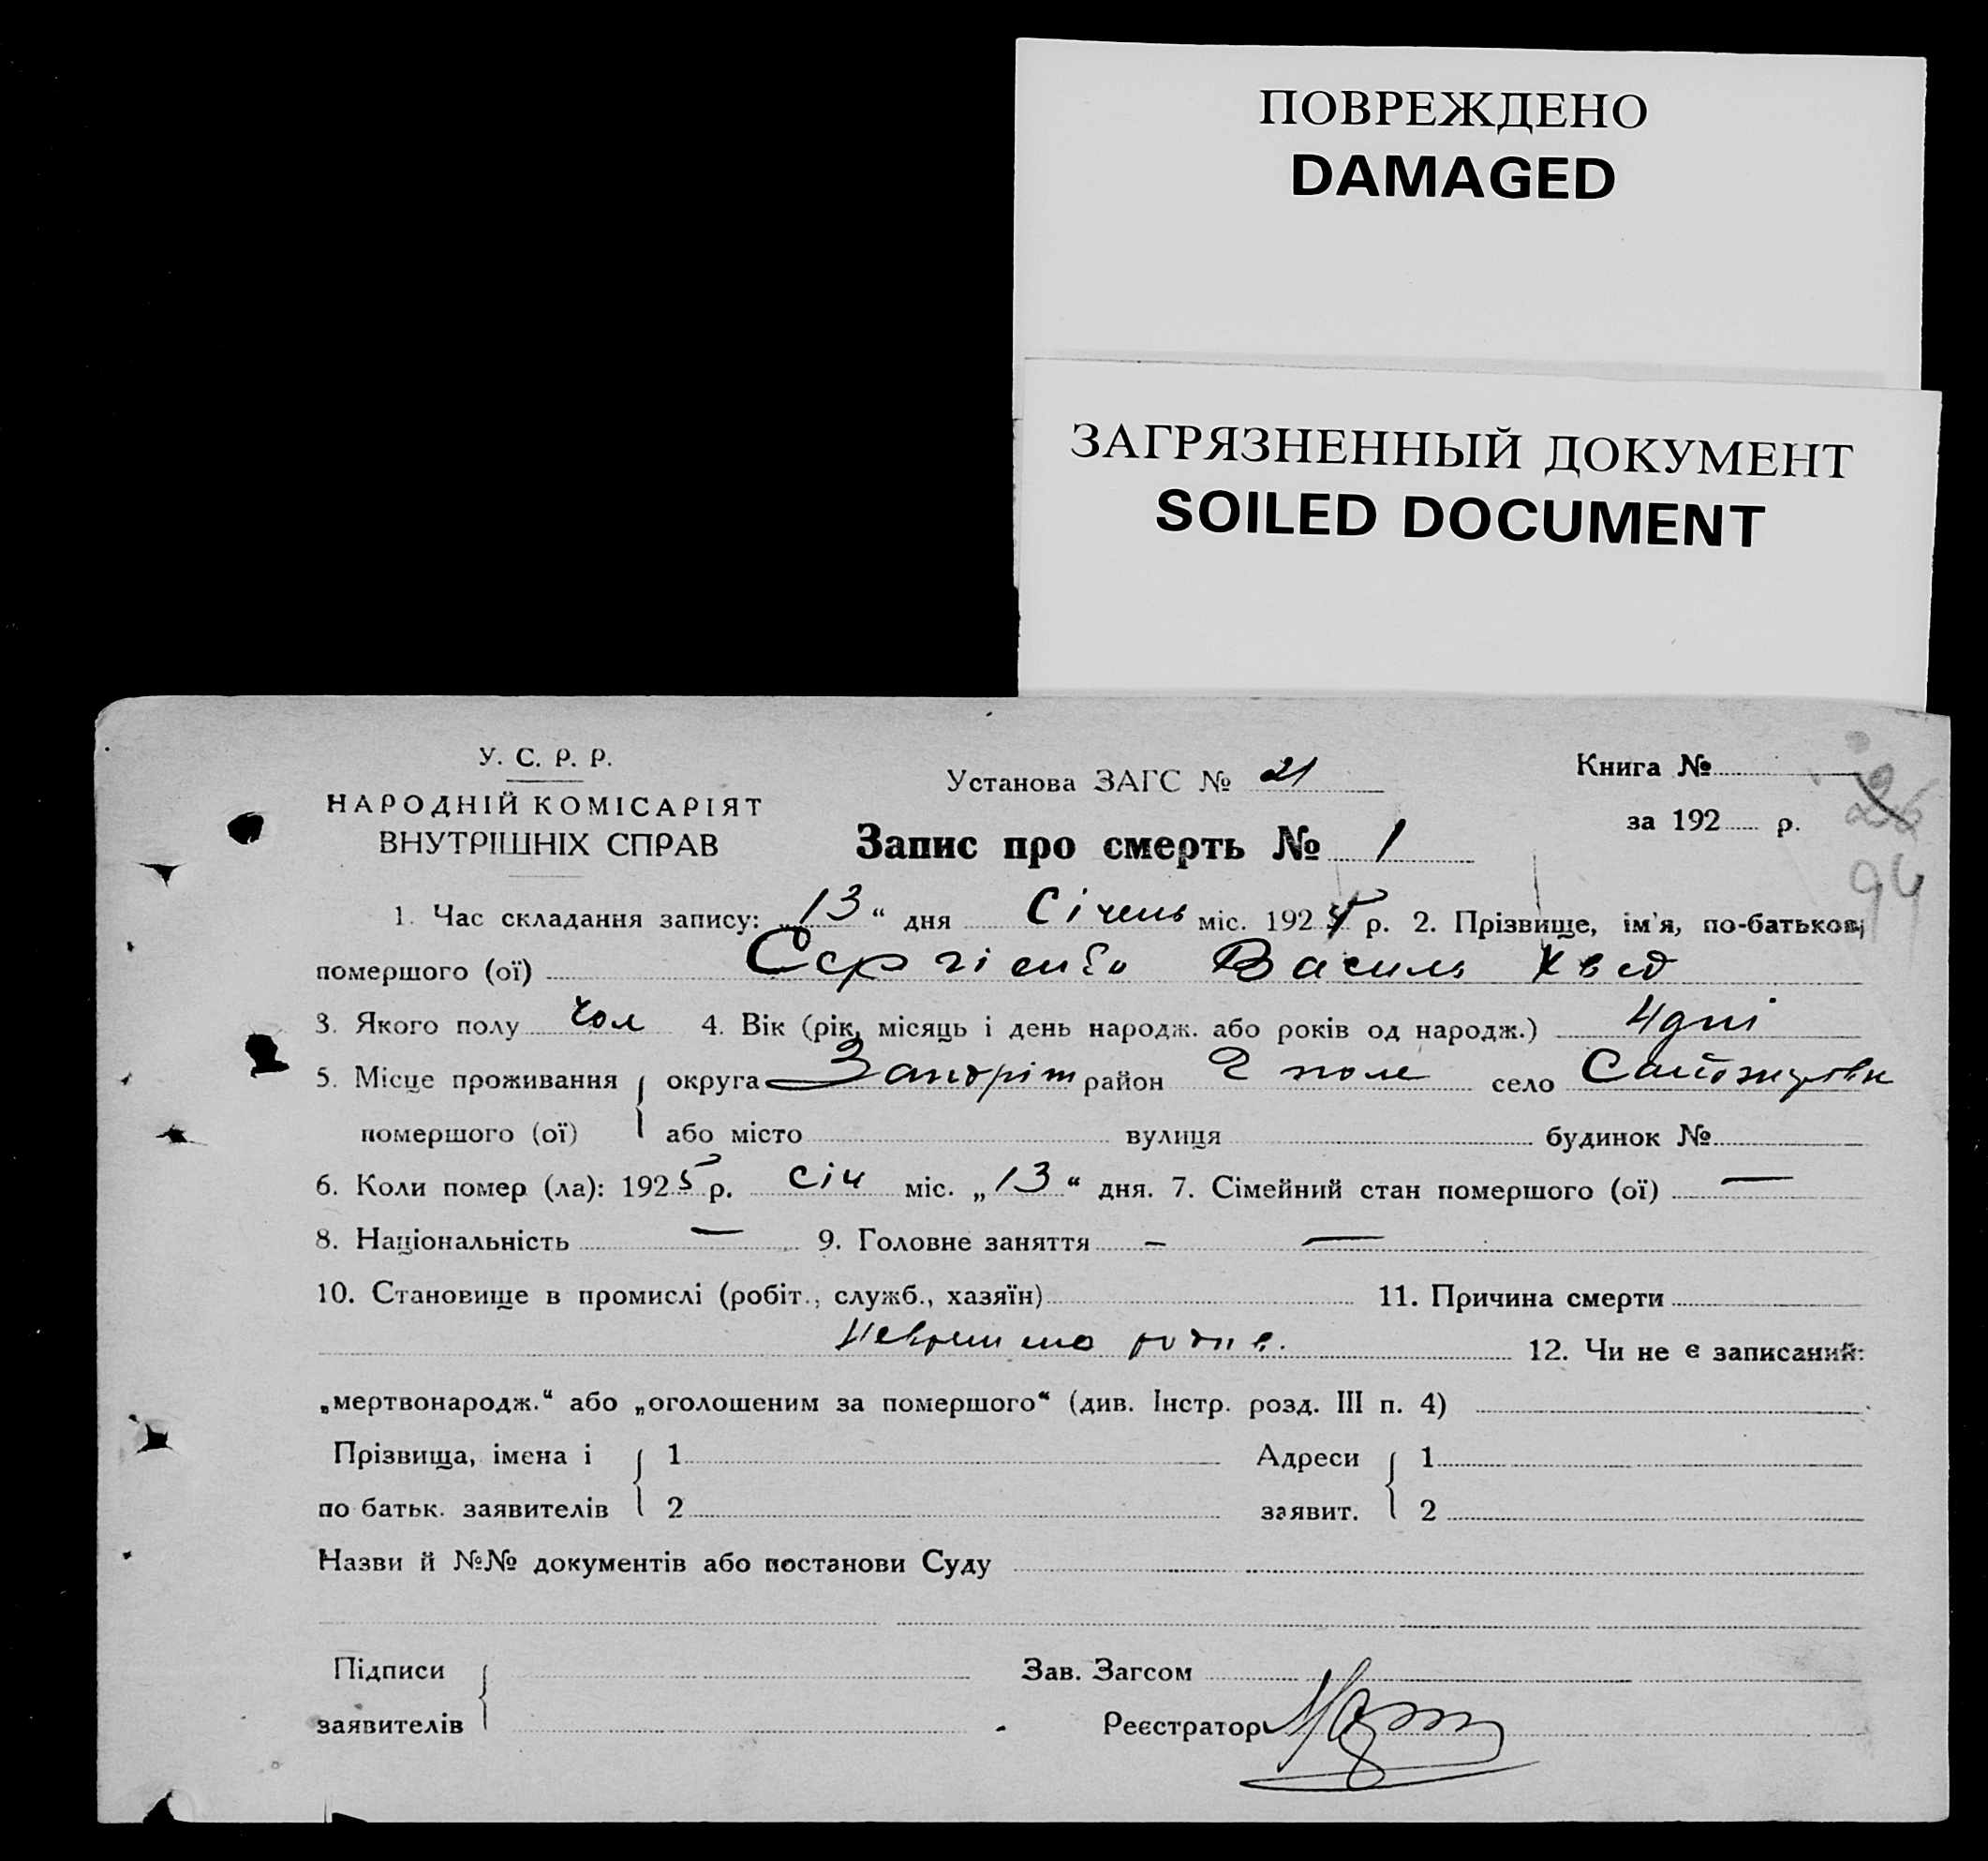 ПОВРЕЖДЕНО
DAMAGED
ЗАГРЯЗНЕННЫЙ ДОКУМЕНТ
SOILED DOCUMENT
У. С. Р. Р.
НАРОДНІЙ КОМІСАРІЯТ
ВНУТРІШНІХ СПРАВ
Установа ЗАГС № 21
Книга №
за 192 р.
26
94
Запис про смерть № 1
1. Час складання запису: „13“ дня Січень міс. 1925 р. 2. Прізвище, ім'я, по-батькові
помершого (ої) Сергієнко Василь Хвед
3. Якого полу чол 4. Вік (рік, місяць і день народж. або років од народж.) 4 дні
5. Місце проживання округа район 2 поле село
помершого (ої) або місто вулиця будинок №
6. Коли помер (ла): 1925 р. січ міс. „13“ дня. 7. Сімейний стан помершого (ої) —
8. Національність — 9. Головне заняття — —
10. Становище в промислі (робіт., служб., хазяїн) 11. Причина смерти
12. Чи не є записаний:
„мертвонародж.“ або „оголошеним за помершого“ (див. Інстр. розд. III п. 4)
Прізвища, імена і 1 Адреси 1
по батьк. заявителів 2 заявит. 2
Назви й №№ документів або постанови Суду
Підписи Зав. Загсом
заявителів Реєстратор